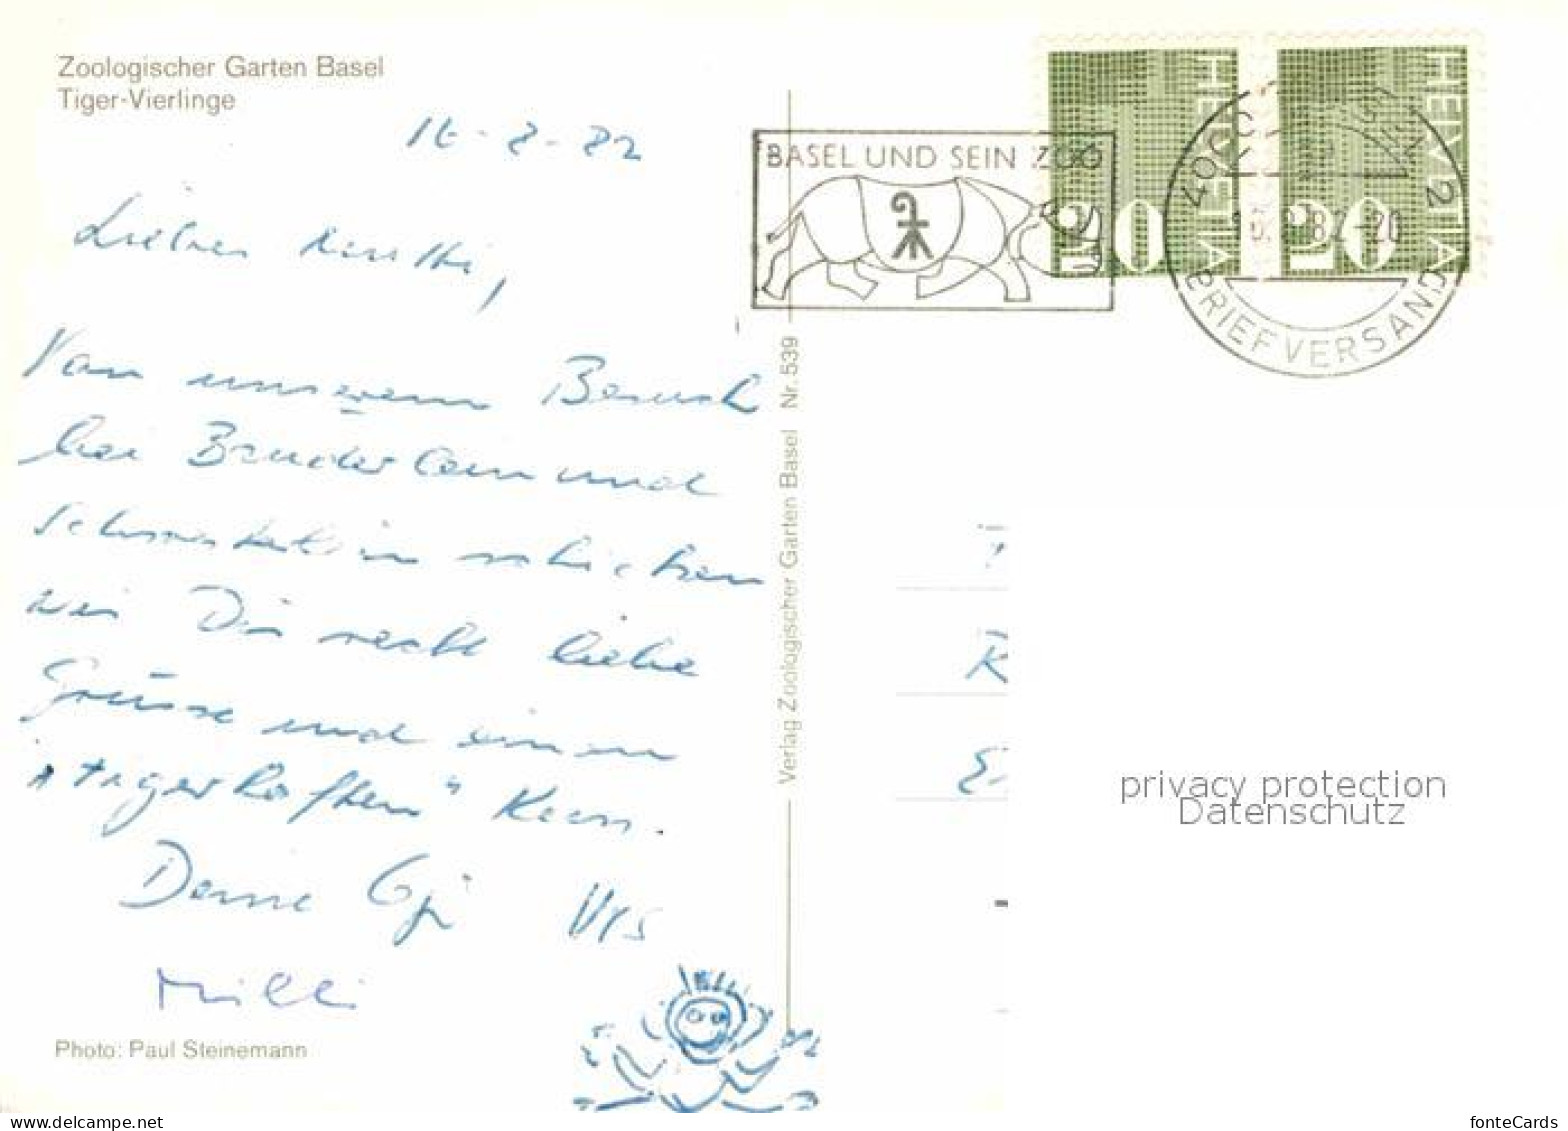 Zoologischer Garten Basel
Tiger-Vierlinge
16-8-82
BASEL UND SEIN ZOO
HELVETIA 20
HELVETIA 20
4000 BASEL 2
BRIEFVERSAND
-20
Lieber
Von unserem Besuch
bei Bruderlein und
Schwesterlein schicken
wir Dir recht liebe
Grüsse und einen
"tigerhaften" Kuss.
Deine Urs
Milli
Photo: Paul Steinemann
Verlag Zoologischer Garten Basel Nr. 539
privacy protection
Datenschutz
fonteCards